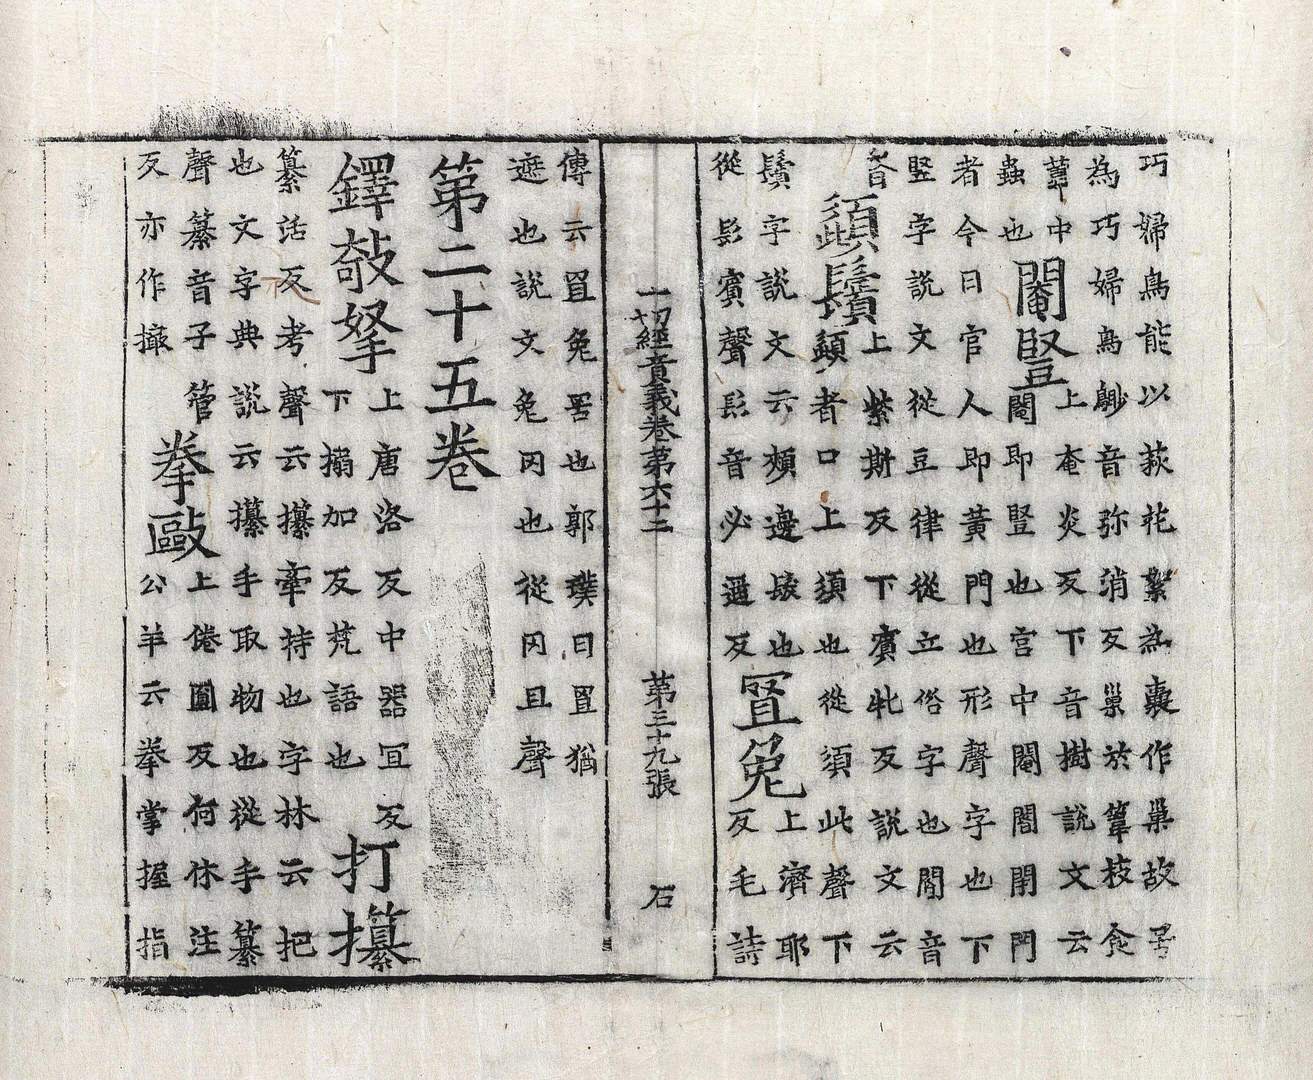 巧婦鳥能以荻花絮為裹作巢故号
為巧婦鳥音弥消反巢於葦枝食
葦中
蟲也
閹豎
上奄炎反下音樹說文云
閹即豎也宮中閹閽閉門
者今日官人即黃門也形聲字也下
竪字說文從豆律從立俗字也閽音
昏
頿鬢
上紫斯反下賓牝反說文云
頿者口上須也從須此聲下
鬢字說文云頰邊髮也
從髟賓聲髟音必遥反
罝菟
上濟耶
反毛詩
一切經音義卷第六十二 第三十九張 石
傳云罝兔罟也郭璞曰罝猶
遮也說文兔网也從网且聲
第二十五卷
鐸敧拏
上唐洛反中器冝反
下搦加反梵語也
打攥
纂活反考聲云攥牽持也字林云把
也文字典說云攥手取物也從手纂
聲纂音子管
反亦作撮
拳毆
上倦圓反何休注
公羊云拳掌握指